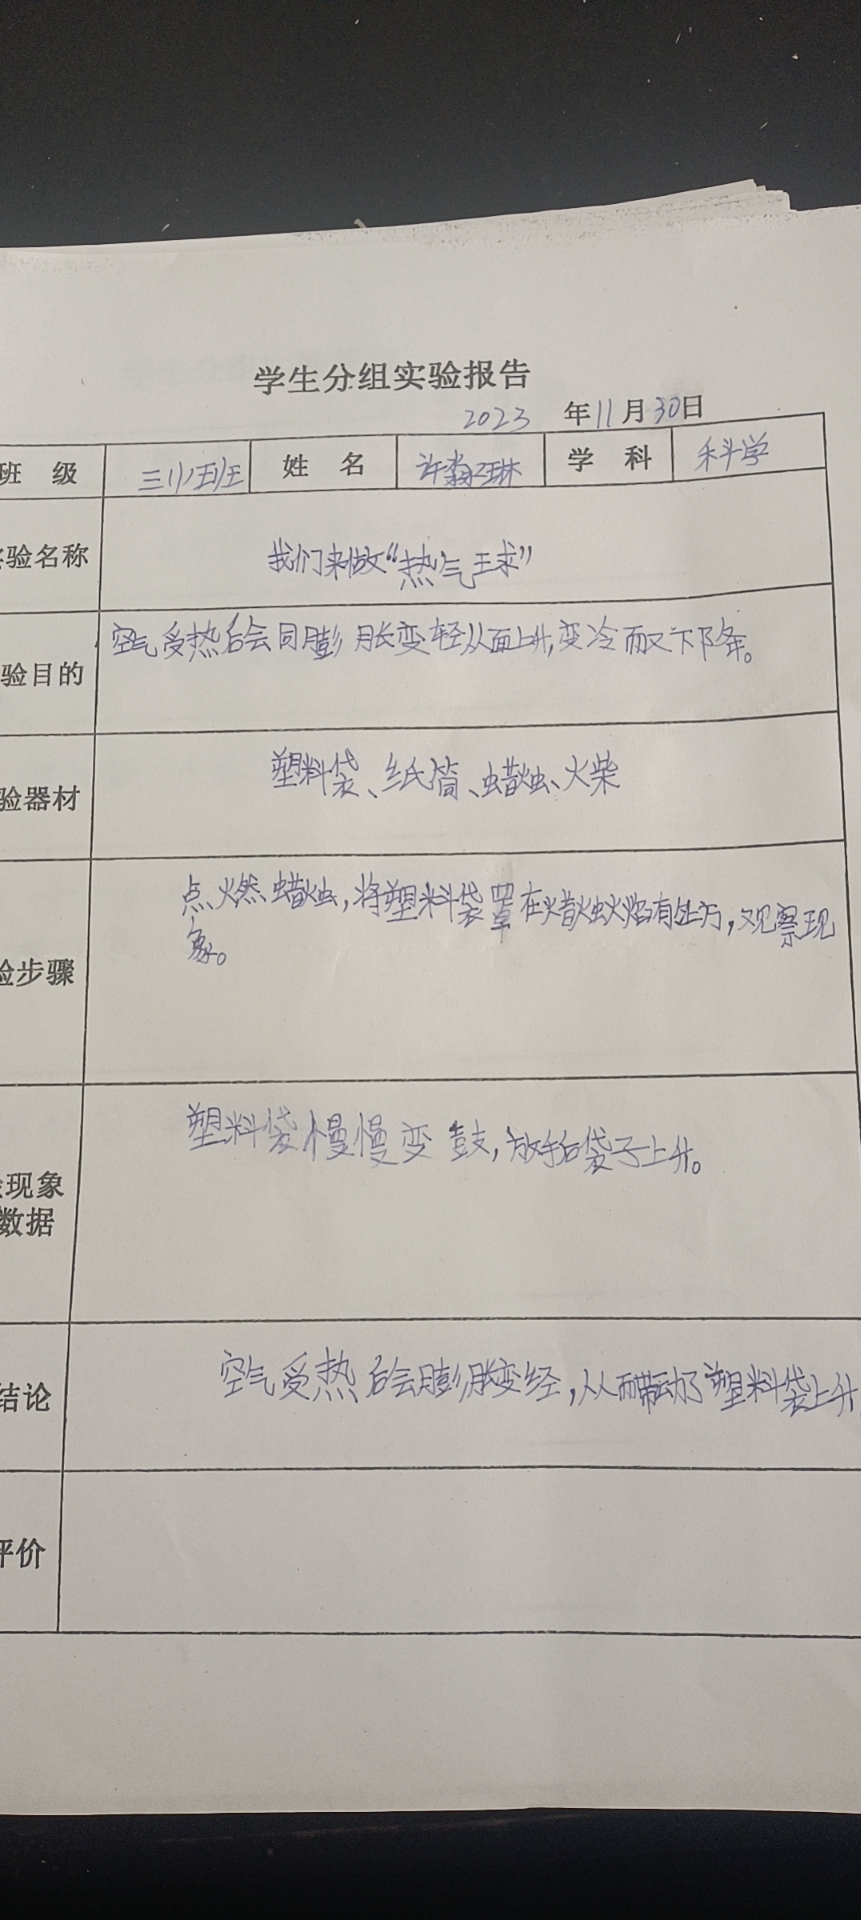 学生分组实验报告
2023 年11月30日
班 级 三小五班 姓 名 许 琳 学 科 科学
验名称 我们来做“热气球”
验目的 空气受热后会同膨胀变轻从面上升,变冷而又下降。
验器材 塑料袋、纸筒、蜡烛、火柴
验步骤 点燃蜡烛,将塑料袋罩在蜡烛火焰有处方,观察现
象。
现象
数据 塑料袋慢慢变鼓,放手后袋子上升。
结论 空气受热后会膨胀变经,从而带动了塑料袋上升
评价